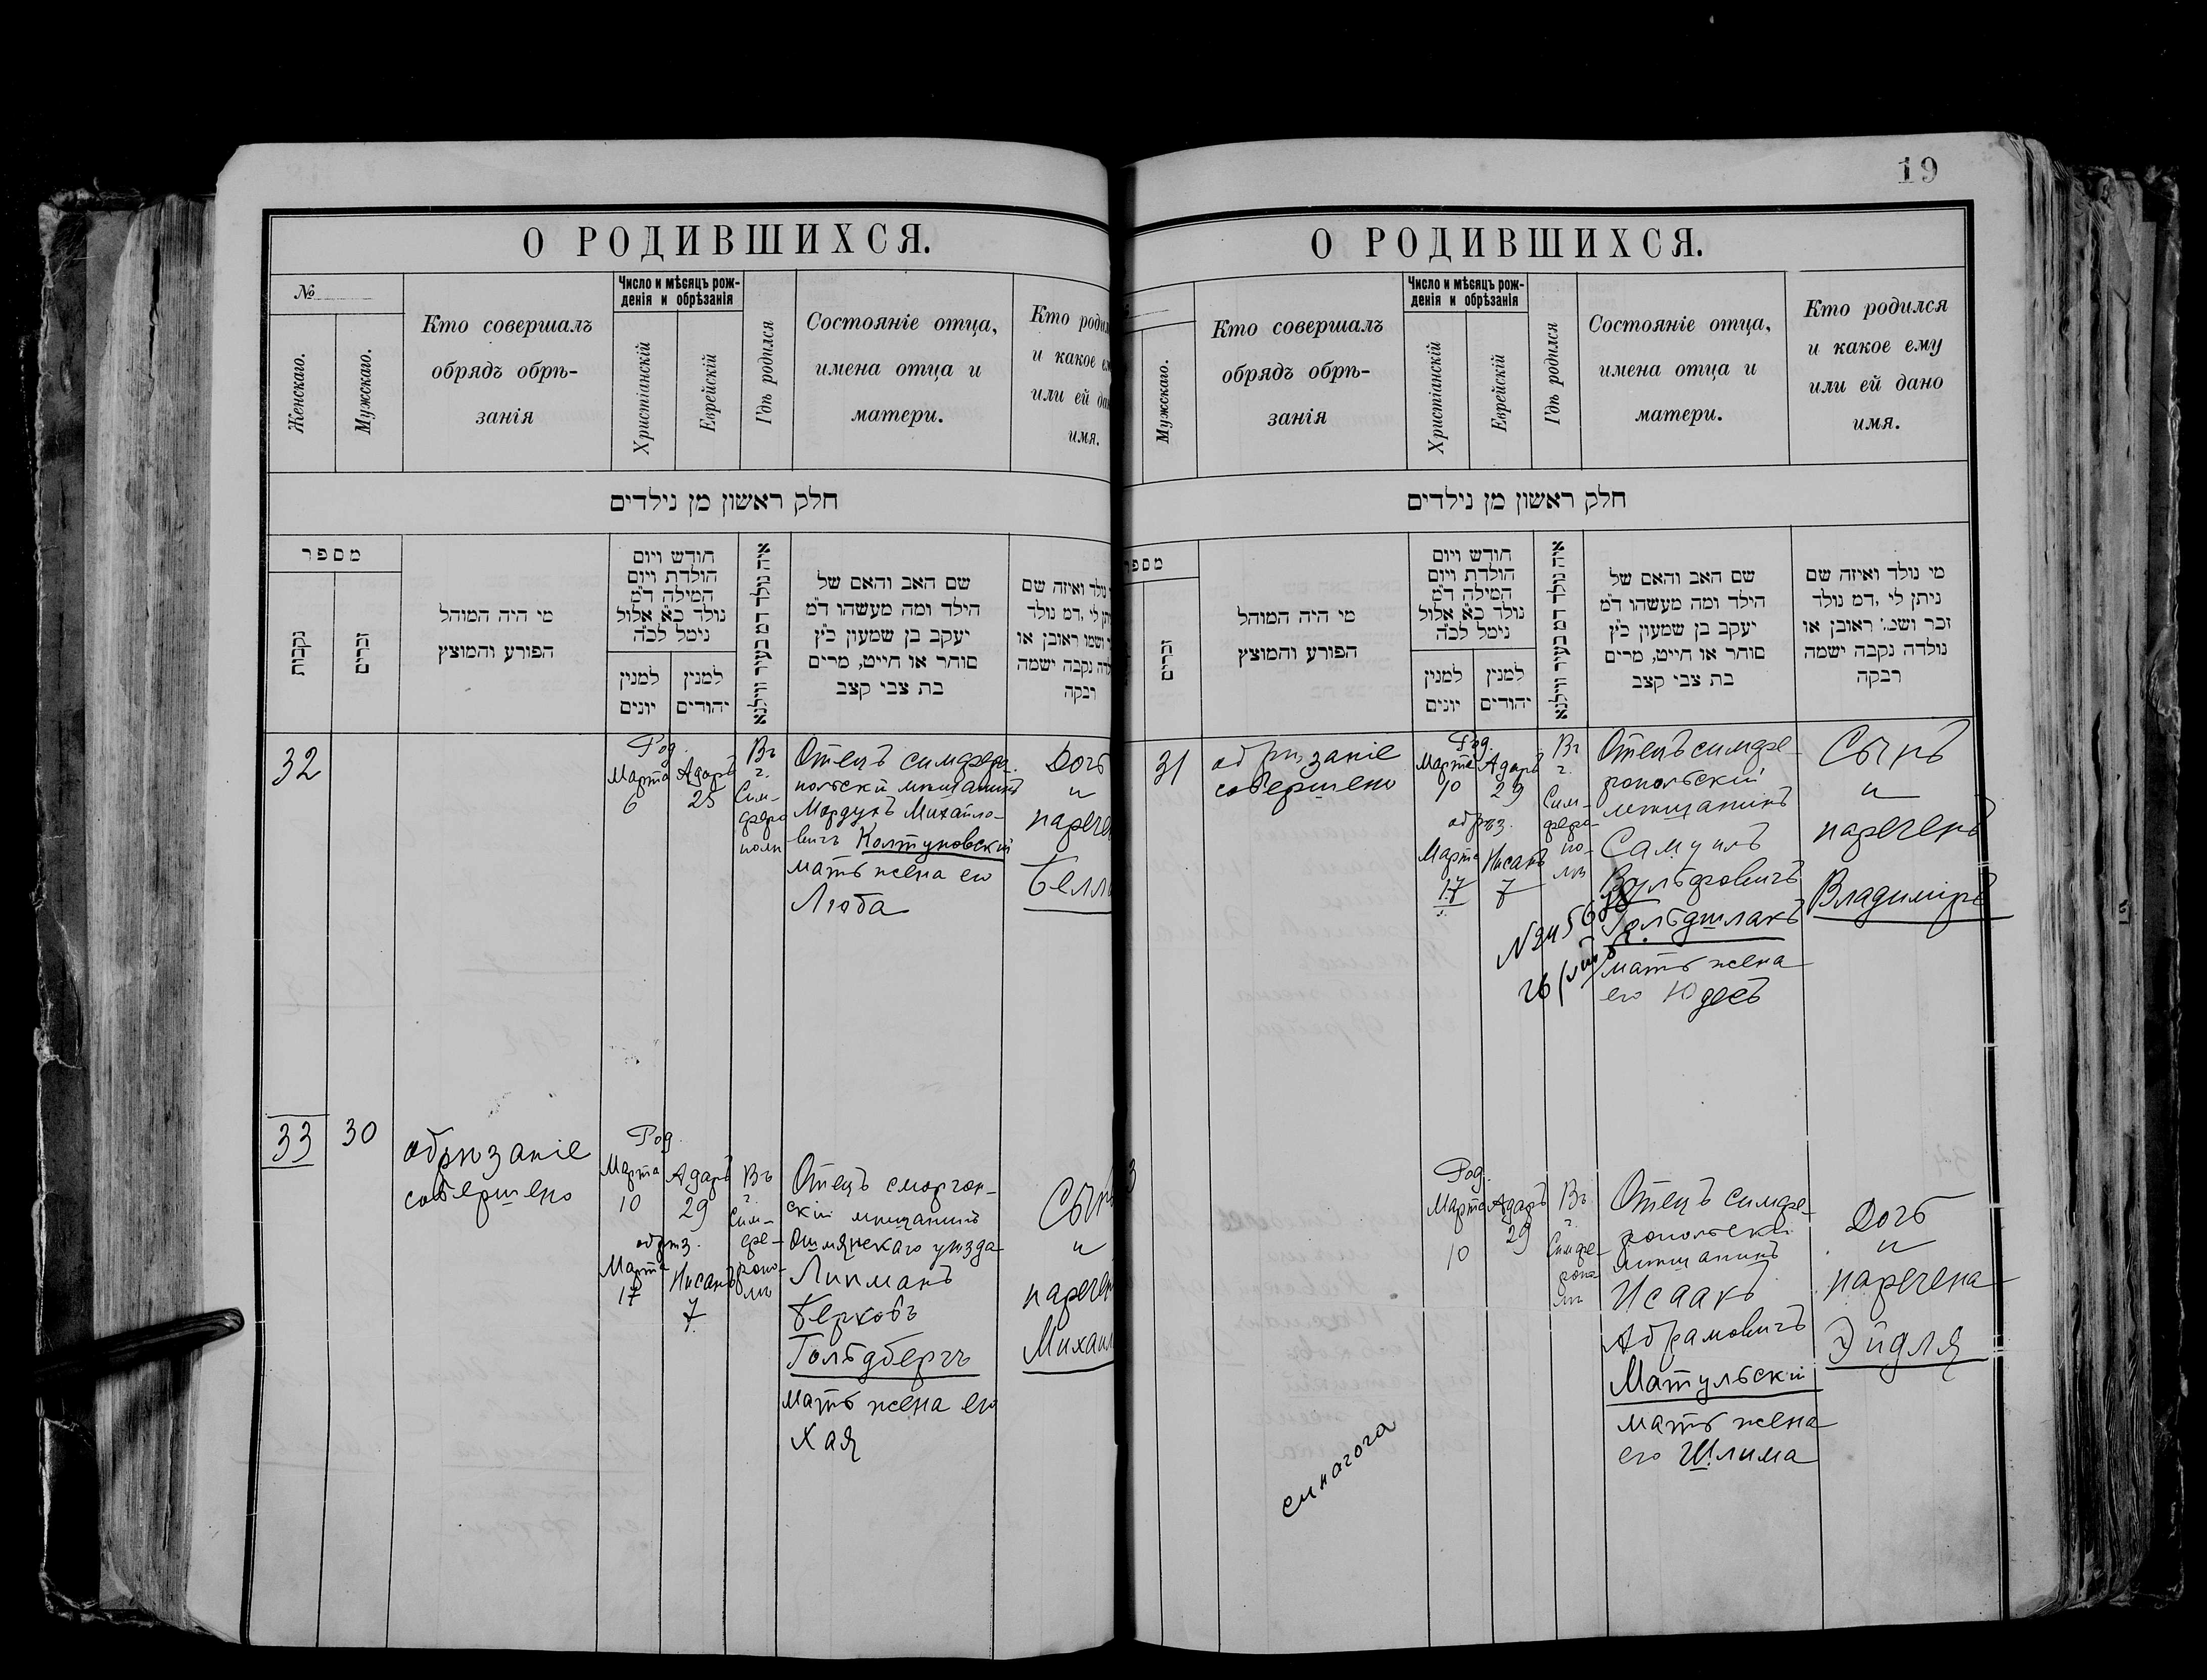 19
О РОДИВШИХСЯ.
№
Женскаго.
Мужскаго.
Кто совершалъ
обрядъ обрѣ-
занія
Число и мѣсяцъ рож-
денія и обрѣзанія
Христіанскій
Еврейскій
Гдѣ родился
Состояніе отца,
имена отца и
матери.
Кто родил
и какое ем
или ей дан
имя.
חלק ראשון מן נילדים
מספר
נקבות
זכרים
מי היה המוהל
הפורע והמוצץ
חודש ויום
הולדת ויום
המילה ד״מ
נולד כ״א אלול
נימל לכ״ה
למנין
יונים
למנין
יהודים
איה נולד דמ בעיר ווילנא
שם האב והאם של
הילד ומה מעשהו ד״מ
יעקב בן שמעון כ״ץ
סוחר או חייט, מרים
בת צבי קצב
נולד ואיזה שם
יתן לי ,דמ נולד
ושמו ראובן או
לדה נקבה ישמה
רבקה
32
Род.
Марта
6
Адаръ
25
Въ
г.
Сим-
феро
поли
Отецъ симферо-
польскій мѣщанинъ
Мордухъ Михайло-
вичъ Колтуновскій
мать жена его
Люба
Дочь
и
нарече
Белла
33
30
обрѣзаніе
совершено
Род.
Марта
10
Адаръ
29
обрѣз.
Марта
17
Нисанъ
7
Въ
г.
Сим-
фе-
ропо-
лѣ
Отецъ сморгон-
скій мѣщанинъ
Ошмянскаго уѣзда
Липманъ
Берковъ
Гольдбергъ
мать жена его
Хая
Сынъ
и
наречен
Михаил
О РОДИВШИХСЯ.
Мужскаго.
Кто совершалъ
обрядъ обрѣ-
занія
Число и мѣсяцъ рож-
денія и обрѣзанія
Христіанскій
Еврейскій
Гдѣ родился
Состояніе отца,
имена отца и
матери.
Кто родился
и какое ему
или ей дано
имя.
חלק ראשון מן נילדים
מספ
זכרים
מי היה המוהל
הפורע והמוצץ
חודש ויום
הולדת ויום
המילה ד״מ
נולד כ״א אלול
נימל לכ״ה
למנין
יונים
למנין
יהודים
איה נולד דמ בעיר ווילנא
שם האב והאם של
הילד ומה מעשהו ד״מ
יעקב בן שמעון כ״ץ
סוחר או חייט, מרים
בת צבי קצב
מי נולד ואיזה שם
ניתן לי ,דמ נולד
זכר ושמ: ראובן או
נולדה נקבה ישמה
רבקה
31
обрѣзаніе
совершено
Род.
Марта
10
Адаръ
29
обрѣз.
Марта
17
Нисанъ
7
Въ
г.
Сим-
феро-
по-
лѣ
Отецъ симфе-
ропольскій
мѣщанинъ
Самуилъ
Вульфовичъ
Гольдшлакъ
мать жена
его Юдесъ
Сынъ
и
нареченъ
Владиміръ
3
Род.
Марта
10
Адаръ
29
Въ
г.
Симфе-
ропо
лѣ
Отецъ симфе-
ропольскій
мѣщанинъ
Исаакъ
Абрамовичъ
Матульскій
мать жена
его Шлима
Дочь
и
наречена
Эйдля
синагога